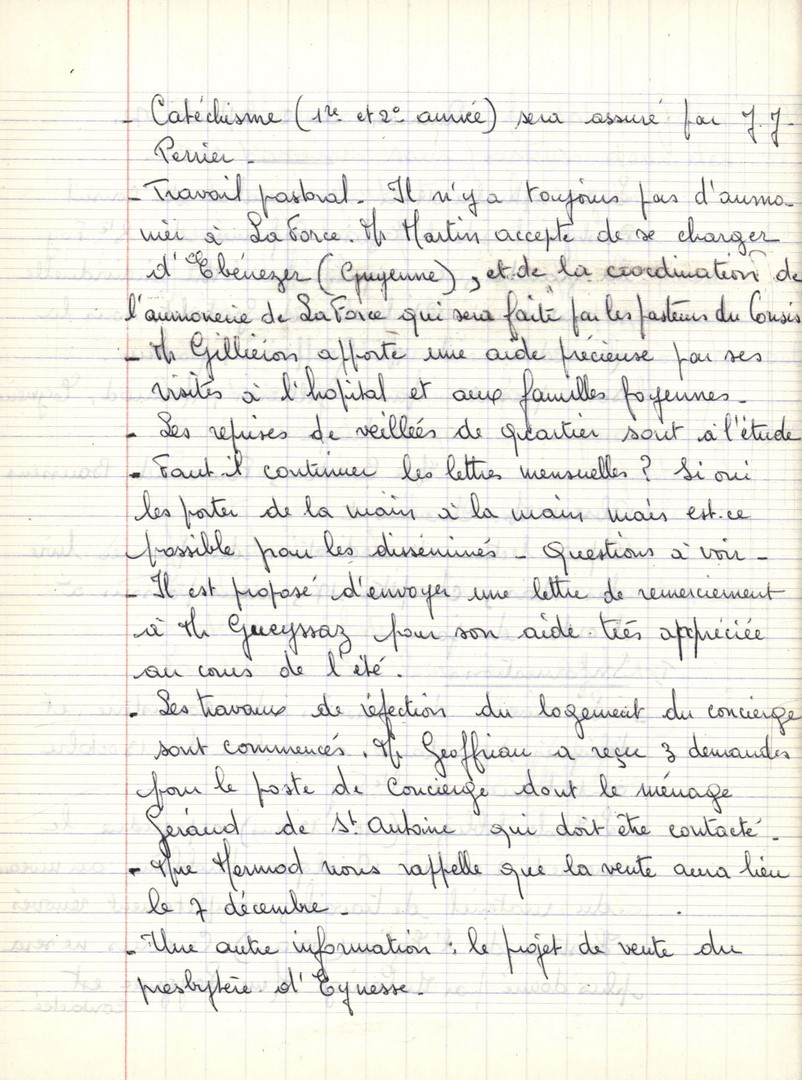 - Catéchisme (1re et 2e année) sera assuré par J.J.
Perrier -
- Travail pastoral. Il n'y a toujours pas d'aumo-
nier à La Force. Mr Martin accepte de se charger
d'Ebénezer (Guyenne), et de la coordination de
l'aumonerie de La Force qui sera faite par les pasteurs du Consis
- Mr Gilliéron apporte une aide précieuse par ses
visites à l'hopital et aux familles foyennes -
- Les reprises de veillées de quartier sont à l'étude
- Faut-il continuer les lettres mensuelles ? Si oui
les porter de la main à la main mais est-ce
possible pour les disséminés - Questions à voir -
- Il est proposé d'envoyer une lettre de remerciement
à Mr Gueyssaz pour son aide très appréciée
au cours de l'été.
- Les travaux de réfection du logement du concierge
sont commencés. Mr Geoffriau a reçu 3 demandes
pour le poste de Concierge dont le ménage
Géraud de St Antoine qui doit être contacté -
- Mme Mermod nous rappelle que la vente aura lieu
le 7 décembre -
- Une autre information : le projet de vente du
presbytère d'Eynesse -